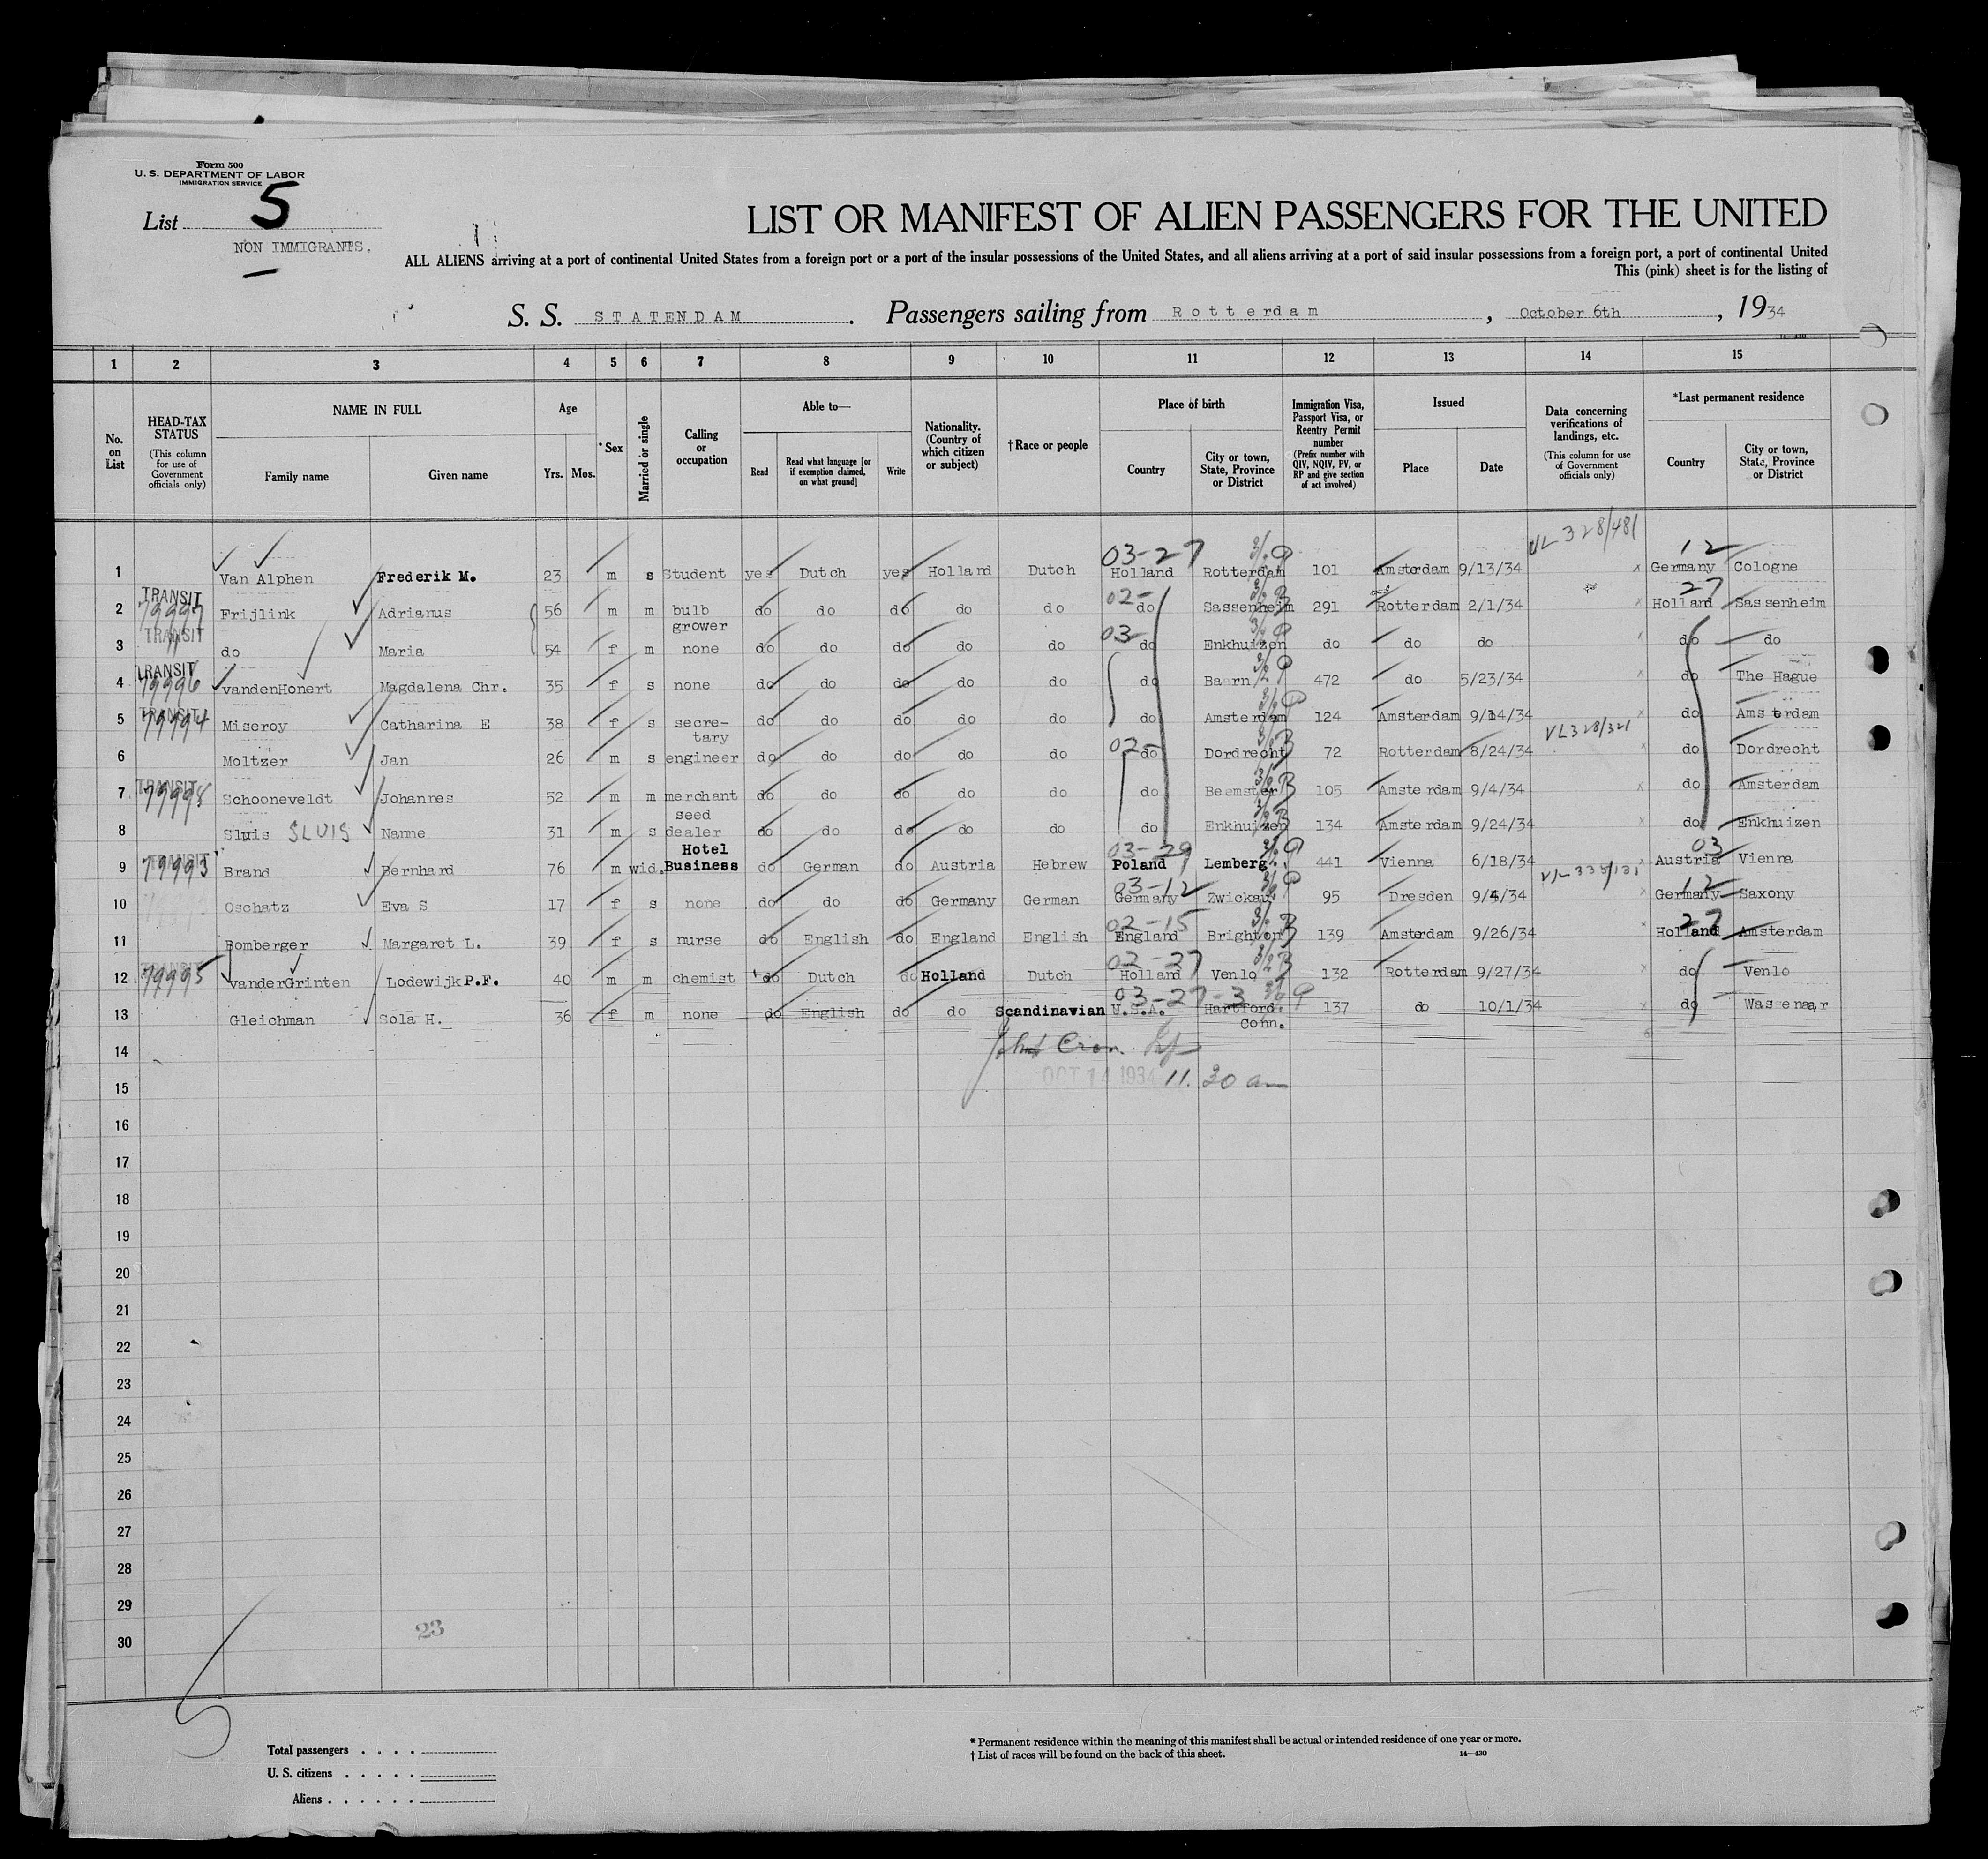 Form 500
U. S. DEPARTMENT OF LABOR
IMMIGRATION SERVICE
List 5
NON IMMIGRANTS.
LIST OR MANIFEST OF ALIEN PASSENGERS FOR THE UNITED
ALL ALIENS arriving at a port of continental United States from a foreign port or a port of the insular possessions of the United States, and all aliens arriving at a port of said insular possessions from a foreign port, a port of continental United
This (pink) sheet is for the listing of
S. S. STATENDAM. Passengers sailing from Rotterdam, October 6th, 1934
14-430
1 2 3 4 5 6 7 8 9 10 11 12 13 14 15
No. on List
HEAD-TAX STATUS (This column for use of Government officials only)
NAME IN FULL Family name Given name
Age Yrs. Mos.
* Sex
Married or single
Calling or occupation
Able to— Read Read what language [or if exemption claimed, on what ground] Write
Nationality. (Country of which citizen or subject)
† Race or people
Place of birth Country City or town, State, Province or District
Immigration Visa, Passport Visa, or Reentry Permit number (Prefix number with QIV, NQIV, PV, or RP and give section of act involved)
Issued Place Date
Data concerning verifications of landings, etc. (This column for use of Government officials only)
*Last permanent residence Country City or town, State, Province or District
VL 328/481
03-27 12
1 Van Alphen Frederik M. 23 m s Student yes Dutch yes Holland Dutch Holland Rotterdam 101 Amsterdam 9/13/34 x Germany Cologne
TRANSIT 02- 27
2 79997 Frijlink Adrianus 56 m m bulb grower do do do do do do Sassenheim 291 Rotterdam 2/1/34 x Holland Sassenheim
TRANSIT 03-
3 do Maria 54 f m none do do do do do do Enkhuizen do do do do do
TRANSIT
4 79996 vandenHonert Magdalena Chr. 35 f s none do do do do do do Baarn 472 do 5/23/34 x do The Hague
TRANSIT
5 79994 Miseroy Catharina E 38 f s secretary do do do do do do Amsterdam 124 Amsterdam 9/14/34 x do Amsterdam
VL328/321
02-
6 Moltzer Jan 26 m s engineer do do do do do do Dordrecht 72 Rotterdam 8/24/34 do Dordrecht
TRANSIT
7 79998 Schooneveldt Johannes 52 m m merchant do do do do do do Beemster 105 Amsterdam 9/4/34 x do Amsterdam
8 Sluis SLUIS Nanne 31 m s seed dealer do do do do do do Enkhuizen 134 Amsterdam 9/24/34 do Enkhuizen
TRANSIT 03-29 03
9 79993 Brand Bernhard 76 m wid. Hotel Business do German do Austria Hebrew Poland Lemberg. 441 Vienna 6/18/34 Austria Vienna
VL 335/131
03-12 12
10 Oschatz Eva S 17 f s none do do do Germany German Germany Zwickau. 95 Dresden 9/4/34 x Germany Saxony
02-15 27
11 Bomberger Margaret L. 39 f s nurse do English do England English England Brighton 139 Amsterdam 9/26/34 x Holland Amsterdam
TRANSIT 02-27
12 79995 vanderGrinten Lodewijk P.F. 40 m m chemist do Dutch do Holland Dutch Holland Venlo 132 Rotterdam 9/27/34 x do Venlo
03-27-3
13 Gleichman Sola H. 36 f m none do English do do Scandinavian U.S.A. Hartford. Conn. 137 do 10/1/34 x do Wassenaar
14
OCT 14 1934 11.30 am
15
16
17
18
19
20
21
22
23
24
25
26
27
28
29
30
23
5
Total passengers . . . .
U. S. citizens . . . . .
Aliens . . . . . .
* Permanent residence within the meaning of this manifest shall be actual or intended residence of one year or more.
† List of races will be found on the back of this sheet. 14—430